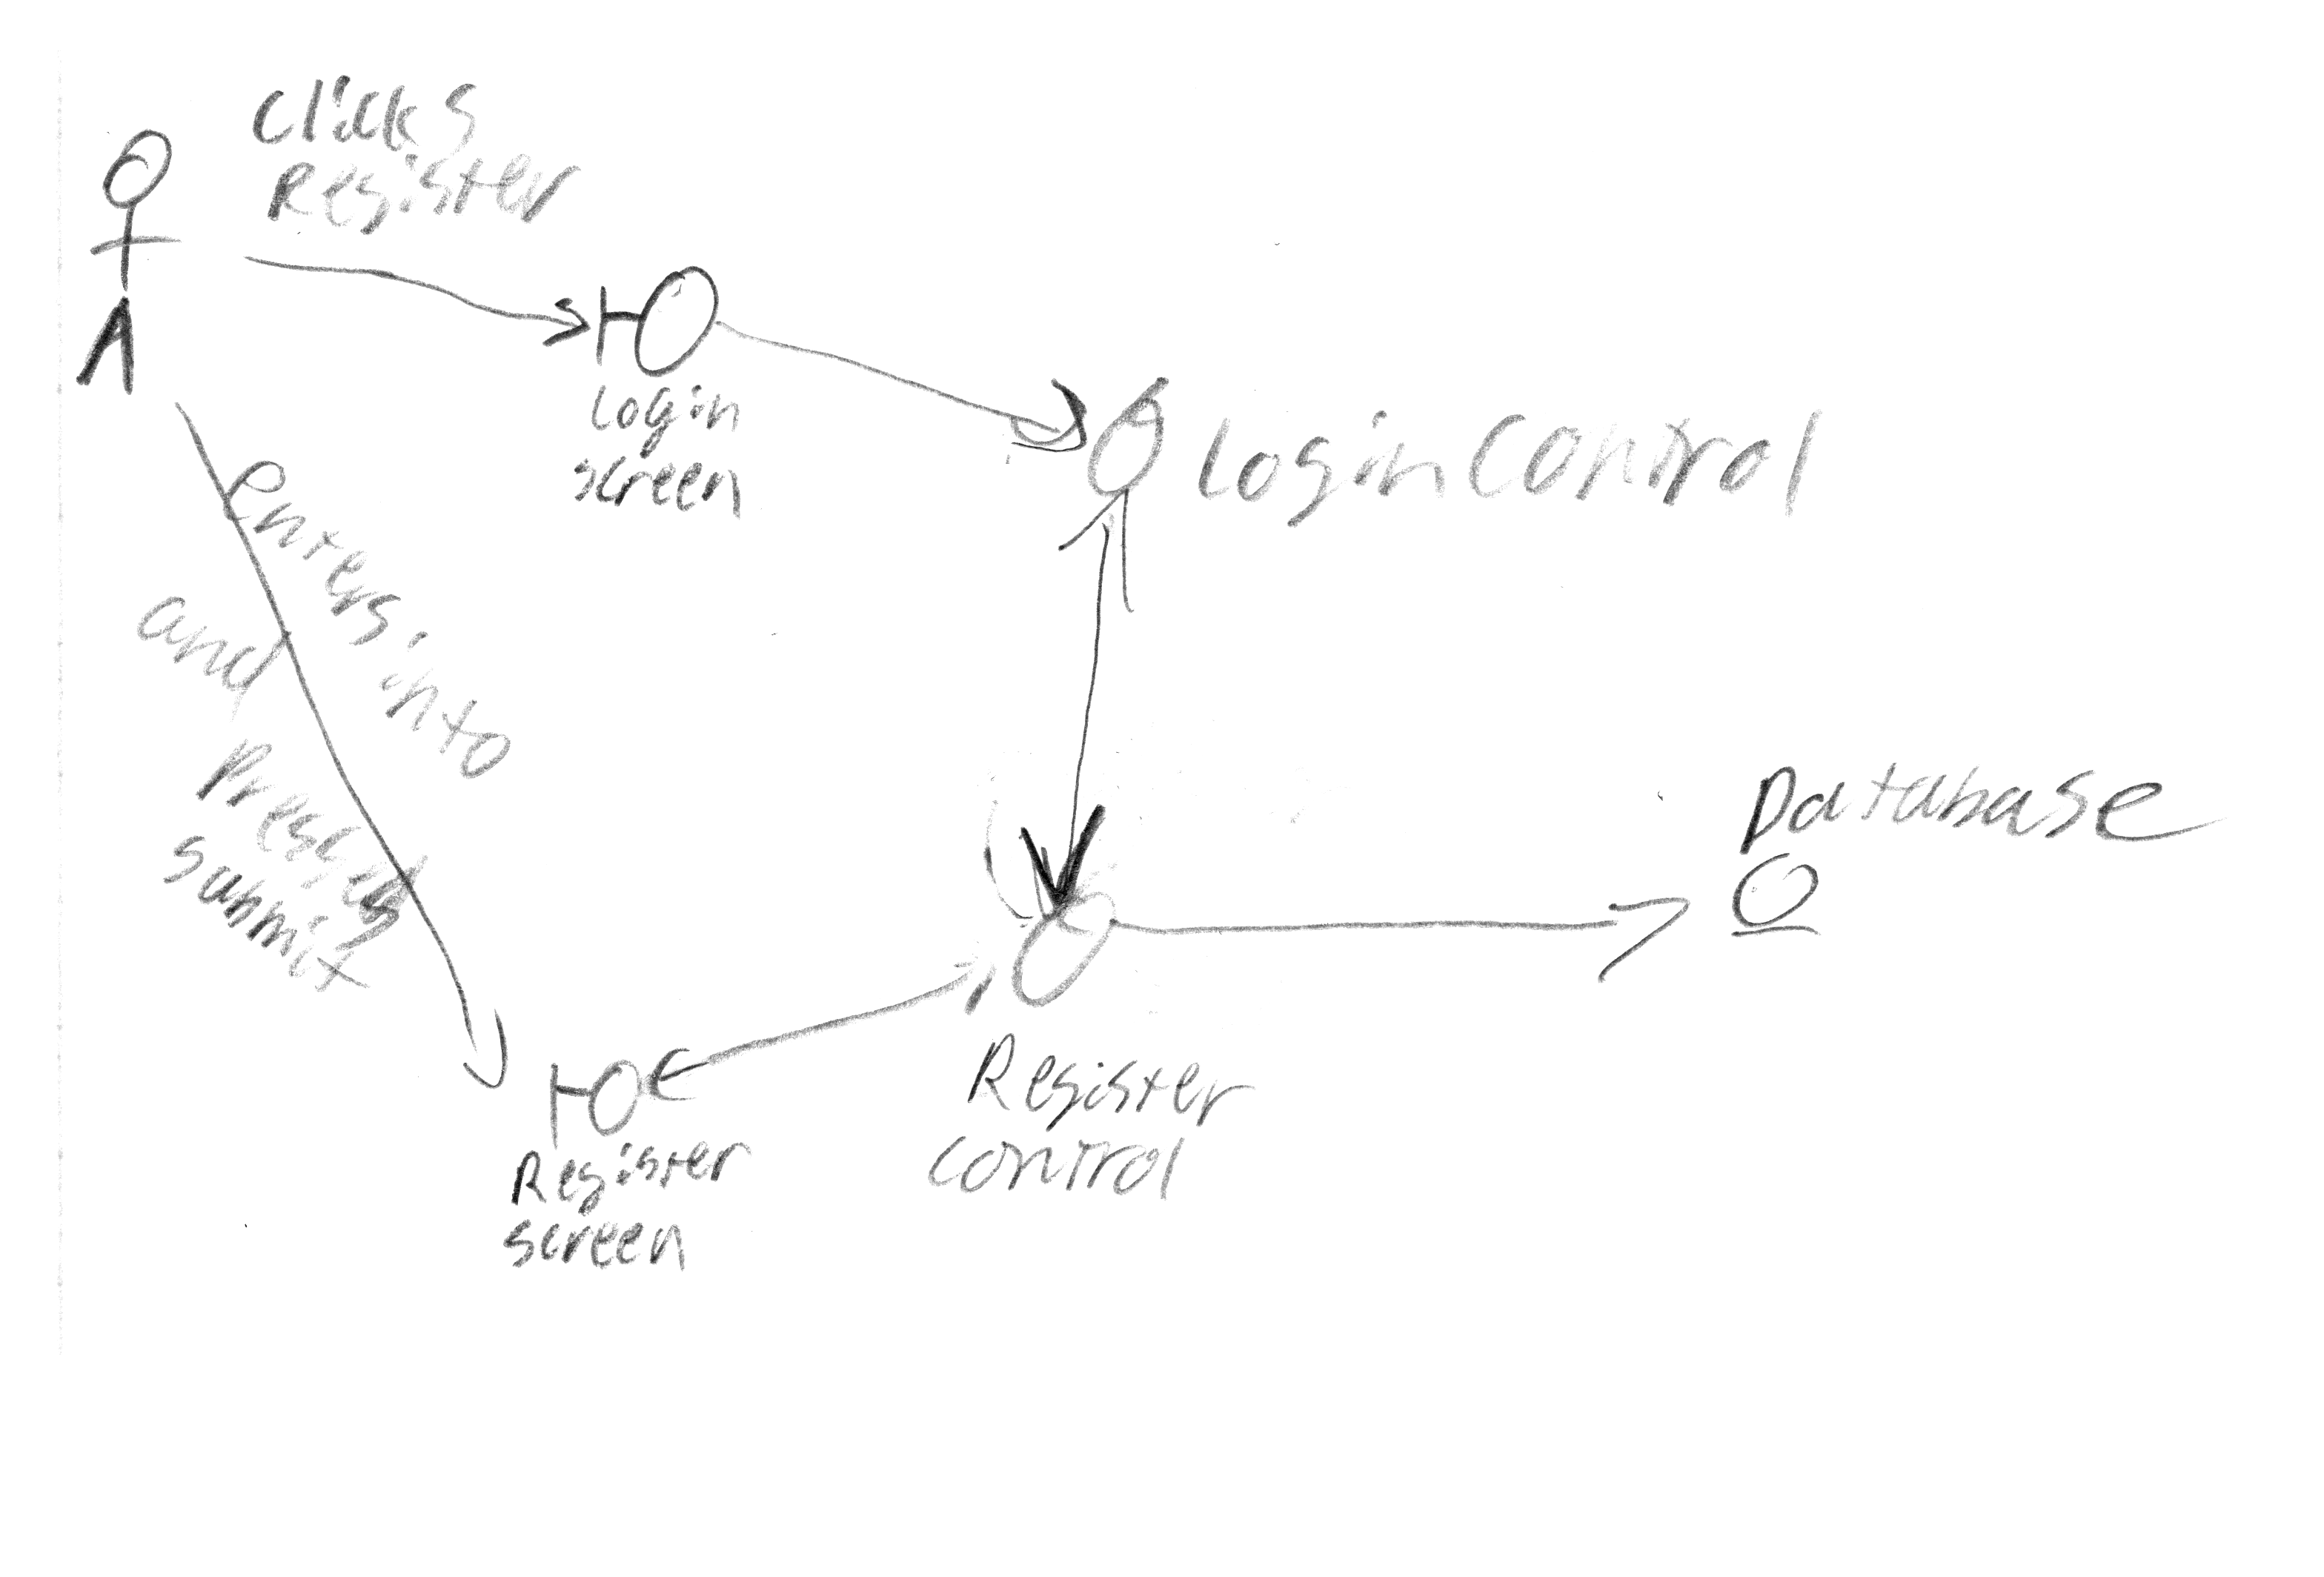 Clicks
Register
Login
screen
Login Control
enters into
and
Presses
submit
Database
Register
control
Register
screen